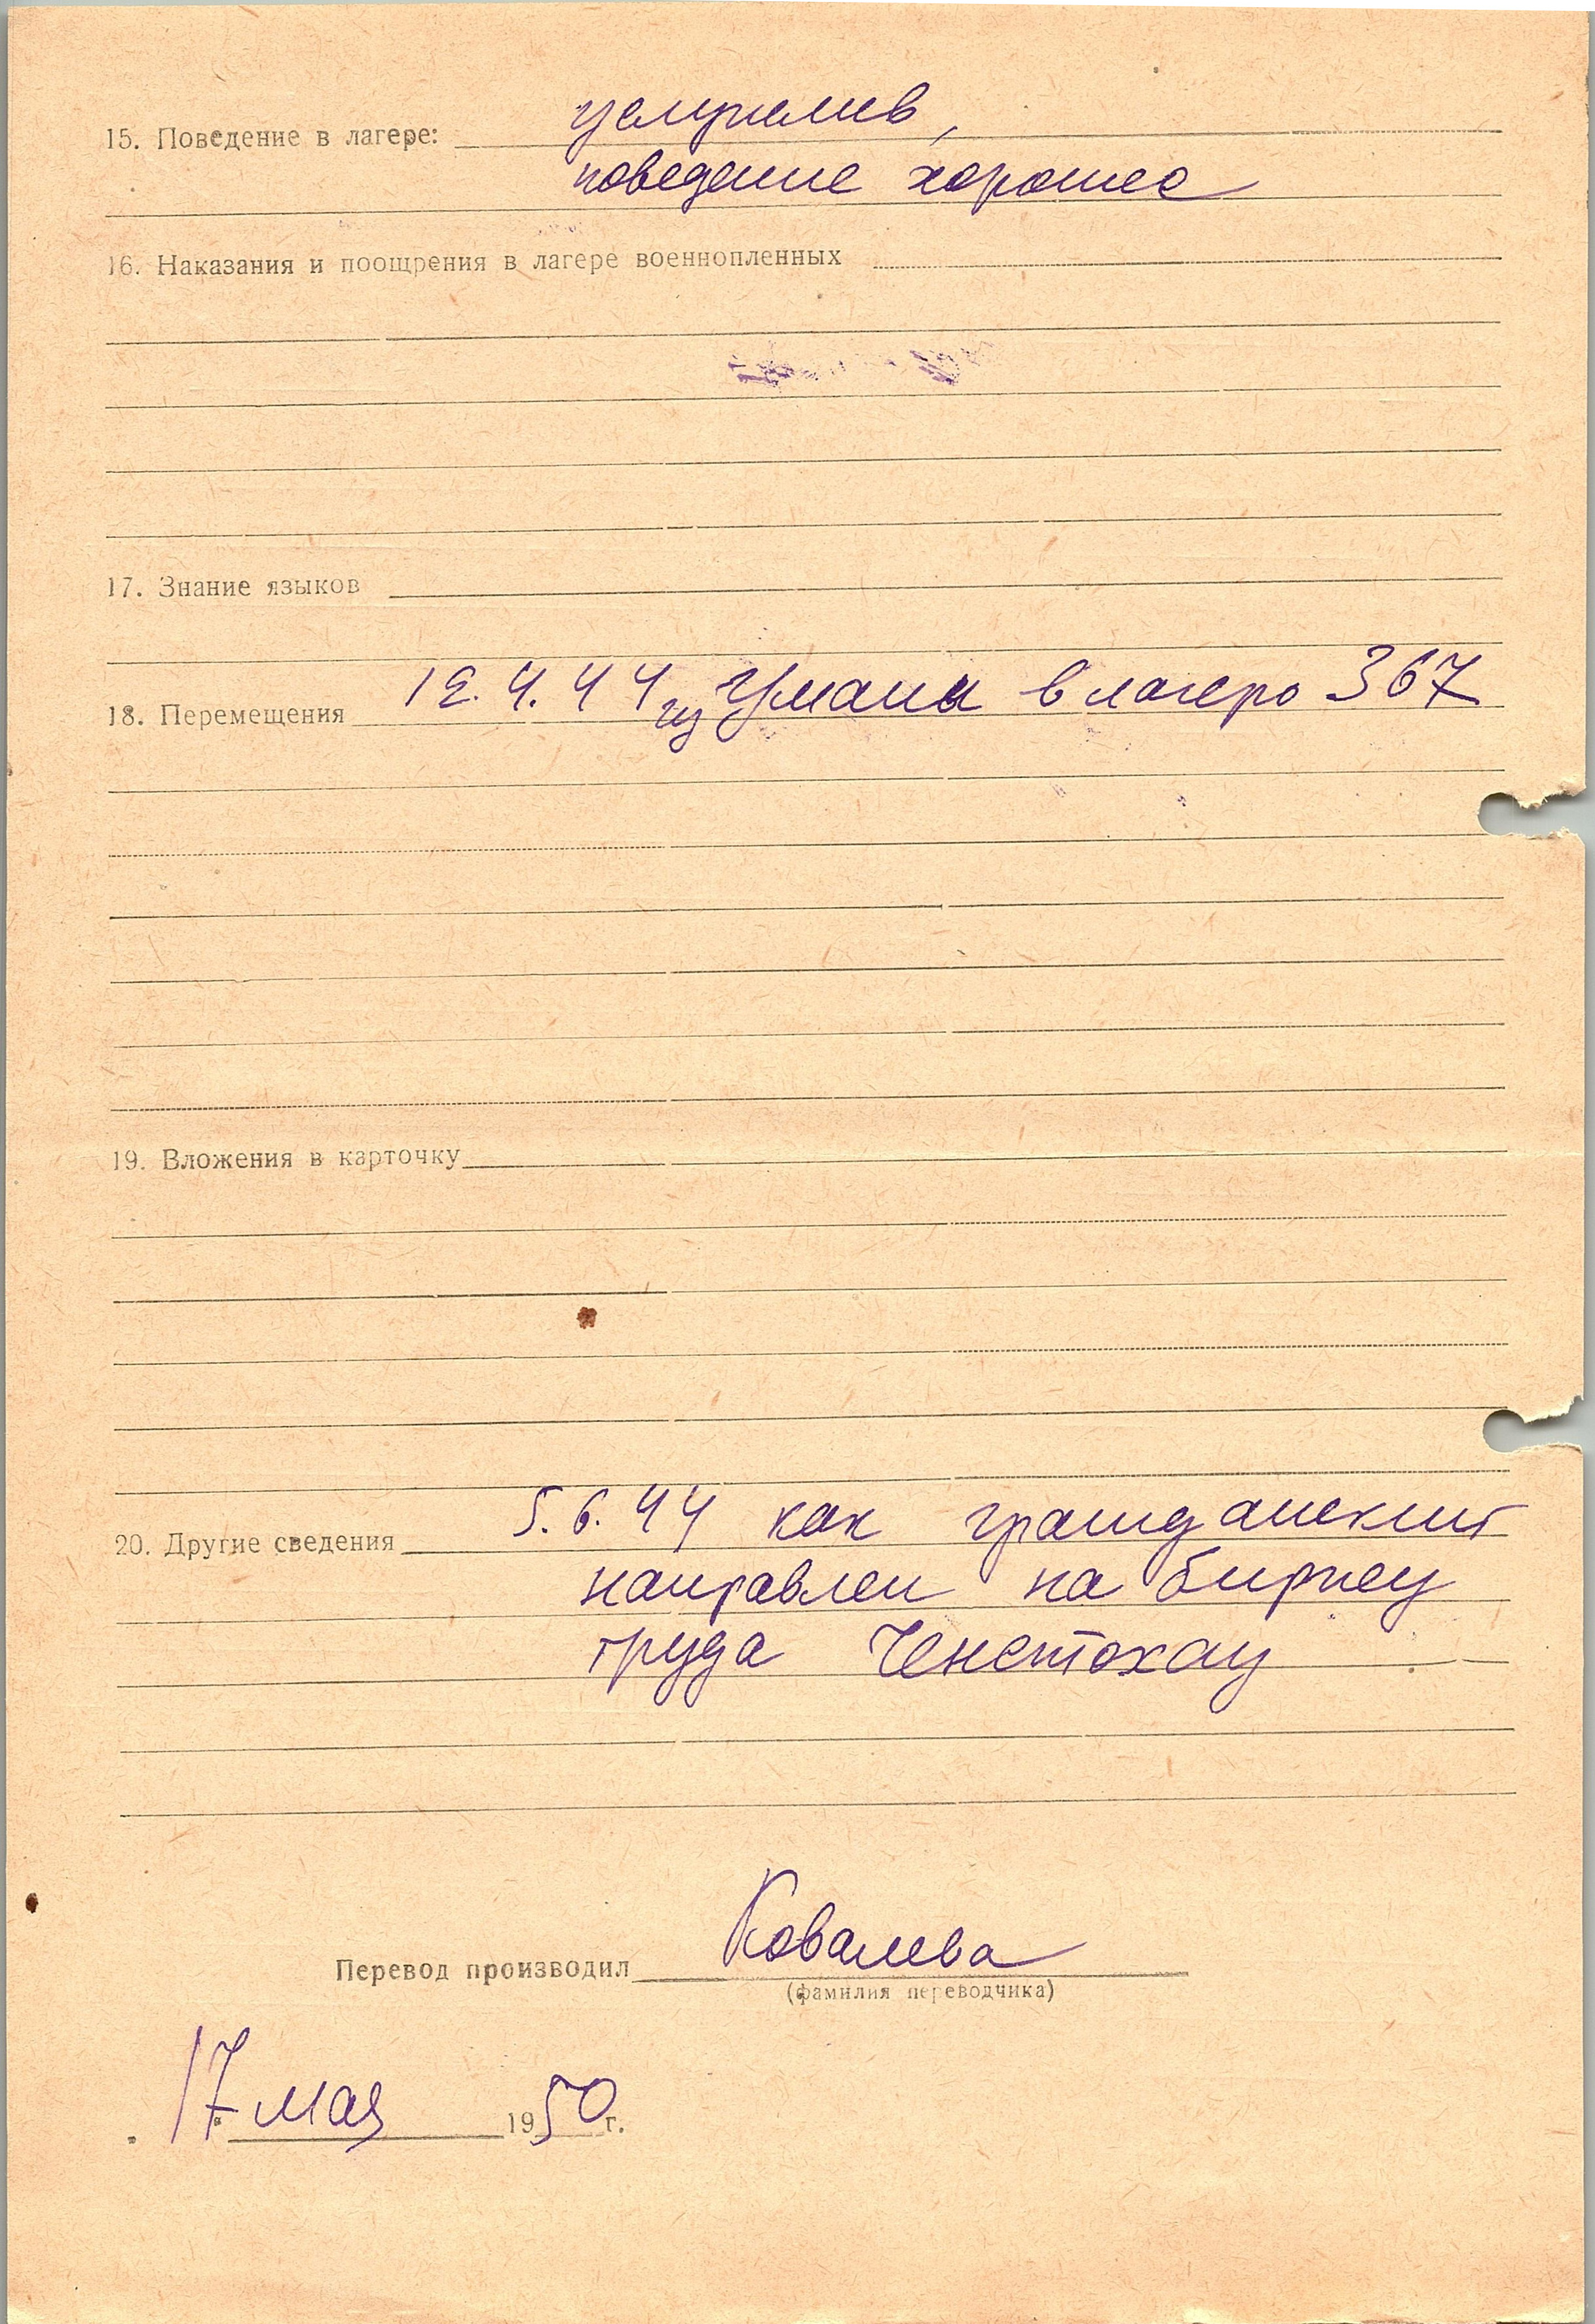 15. Поведение в лагере: услужлив,
поведение хорошее
16. Наказания и поощрения в лагере военнопленных
17. Знание языков
18. Перемещения 12.4.44 из Умани в лагерь 367
19. Вложения в карточку
20. Другие сведения 5.6.44 как гражданский
направлен на биржу
труда Ченстохау
Перевод производил Ковалева
(фамилия переводчика)
17 мая 1950 г.